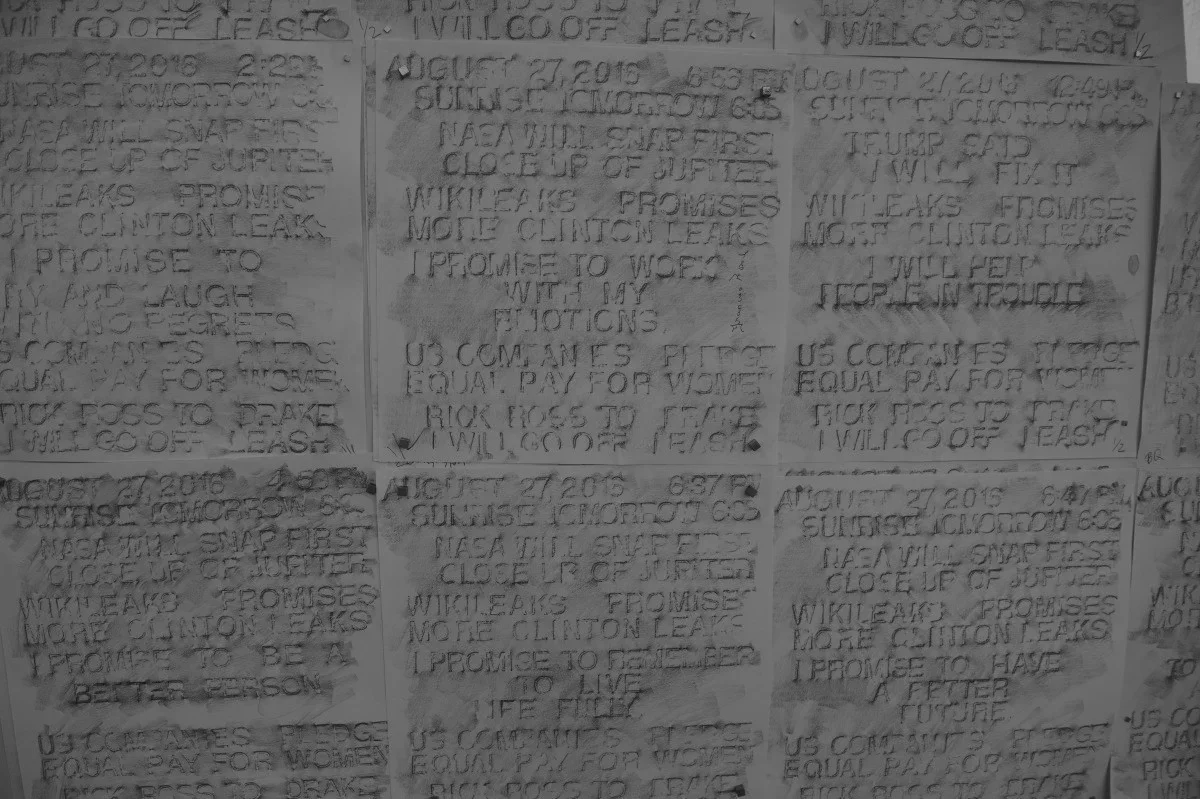 I WILL GO OFF LEASH
I WILL GO OFF LEASH
1/2
RICK ROSS TO DRAKE
I WILL GO OFF LEASH
1/2
UST 27, 2016 2:29
SUNRISE TOMORROW
NASA WILL SNAP FIRST
CLOSE UP OF JUPITER
WIKILEAKS PROMISE
MORE CLINTON LEAKS
I PROMISE TO
AND LAUGH
NO REGRETS
US COMPANIES PLEDGE
EQUAL PAY FOR WOMEN
RICK ROSS TO DRAKE
I WILL GO OFF LEASH
AUGUST 27, 2016 6:53 PM
SUNRISE TOMORROW 6:05
NASA WILL SNAP FIRST
CLOSE UP OF JUPITER
WIKILEAKS PROMISES
MORE CLINTON LEAKS
I PROMISE TO WORK
WITH MY
EMOTIONS
US COMPANIES PLEDGE
EQUAL PAY FOR WOMEN
RICK ROSS TO DRAKE
I WILL GO OFF LEASH
AUGUST 27, 2016 12:49 P
SUNRISE TOMORROW 6:05
TRUMP SAID
I WILL FIX IT
WIKILEAKS PROMISES
MORE CLINTON LEAKS
I WILL HELP
PEOPLE IN TROUBLE
US COMPANIES PLEDGE
EQUAL PAY FOR WOMEN
RICK ROSS TO DRAKE
I WILL GO OFF LEASH
1/2
AUGUST 27, 2016
SUNRISE TOMORROW
NASA WILL SNAP FIRST
CLOSE UP OF JUPITER
WIKILEAKS PROMISES
MORE CLINTON LEAKS
I PROMISE TO BE A
BETTER PERSON
US COMPANIES PLEDGE
EQUAL PAY FOR WOMEN
RICK ROSS TO DRAKE
AUGUST 27, 2016 6:37 PM
SUNRISE TOMORROW 6:05
NASA WILL SNAP FIRST
CLOSE UP OF JUPITER
WIKILEAKS PROMISES
MORE CLINTON LEAKS
I PROMISE TO REMEMBER
TO LIVE
LIFE FULLY
US COMPANIES PLEDGE
EQUAL PAY FOR WOMEN
RICK ROSS TO DRAKE
AUGUST 27, 2016 6:47 P
SUNRISE TOMORROW 6:05
NASA WILL SNAP FIRST
CLOSE UP OF JUPITER
WIKILEAKS PROMISES
MORE CLINTON LEAKS
I PROMISE TO HAVE
A BETTER
FUTURE
US COMPANIES PLEDGE
EQUAL PAY FOR WOMEN
RICK ROSS TO DRAKE
AUGU
SU
WIK
MO
TO
US CO
EQUAL
RICK